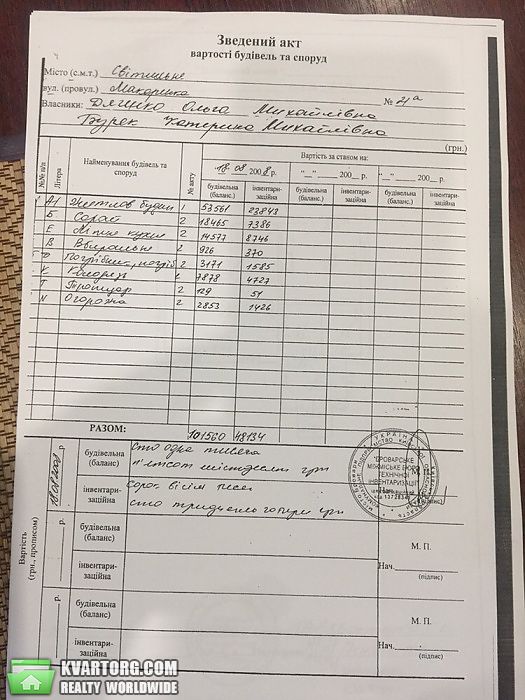 Зведений акт
вартості будівель та споруд
Місто (с.м.т.) Світильне
вул. (провул.) Макаренка № 21а
Власники: Ольга Михайлівна
Катерина Михайлівна
(грн.)
№№ п/п Літера Найменування будівель та споруд № акту Вартість за станом на:
18 08 2008 р. "__"____ 200__ р. "__"____ 200__ р.
будівельна (баланс.) інвентаризаційна будівельна (баланс.) інвентаризаційна будівельна (баланс.) інвентаризаційна
А1 Житлов. будин 53561 23843
Б Сарай 2 18465 7386
Е Літня кухня 2 14577 8746
В Вбиральня 2 926 370
Погрібник, погріб 2 3171 1585
К 2 7878 4727
Т Тротуар 2 129 51
N Огорожа 2 2853 1426
РАЗОМ: 101560 48134
Вартість (грн., прописом)
18.08.2008 р.
будівельна (баланс) сто одна тисяча
п'ятсот шістдесят грн
інвентаризаційна сорок вісім тисяч
сто тридцять чотири грн
УКРАЇНА
"БРОВАРСЬКЕ
МІЖМІСЬКЕ БЮРО
ТЕХНІЧНОЇ
ІНВЕНТАРИЗАЦІЇ"
р.
будівельна (баланс) М. П.
інвентаризаційна Нач.
(підпис)
р.
будівельна (баланс) М. П.
інвентаризаційна Нач.
(підпис)
KVARTORG.COM
REALTY WORLDWIDE